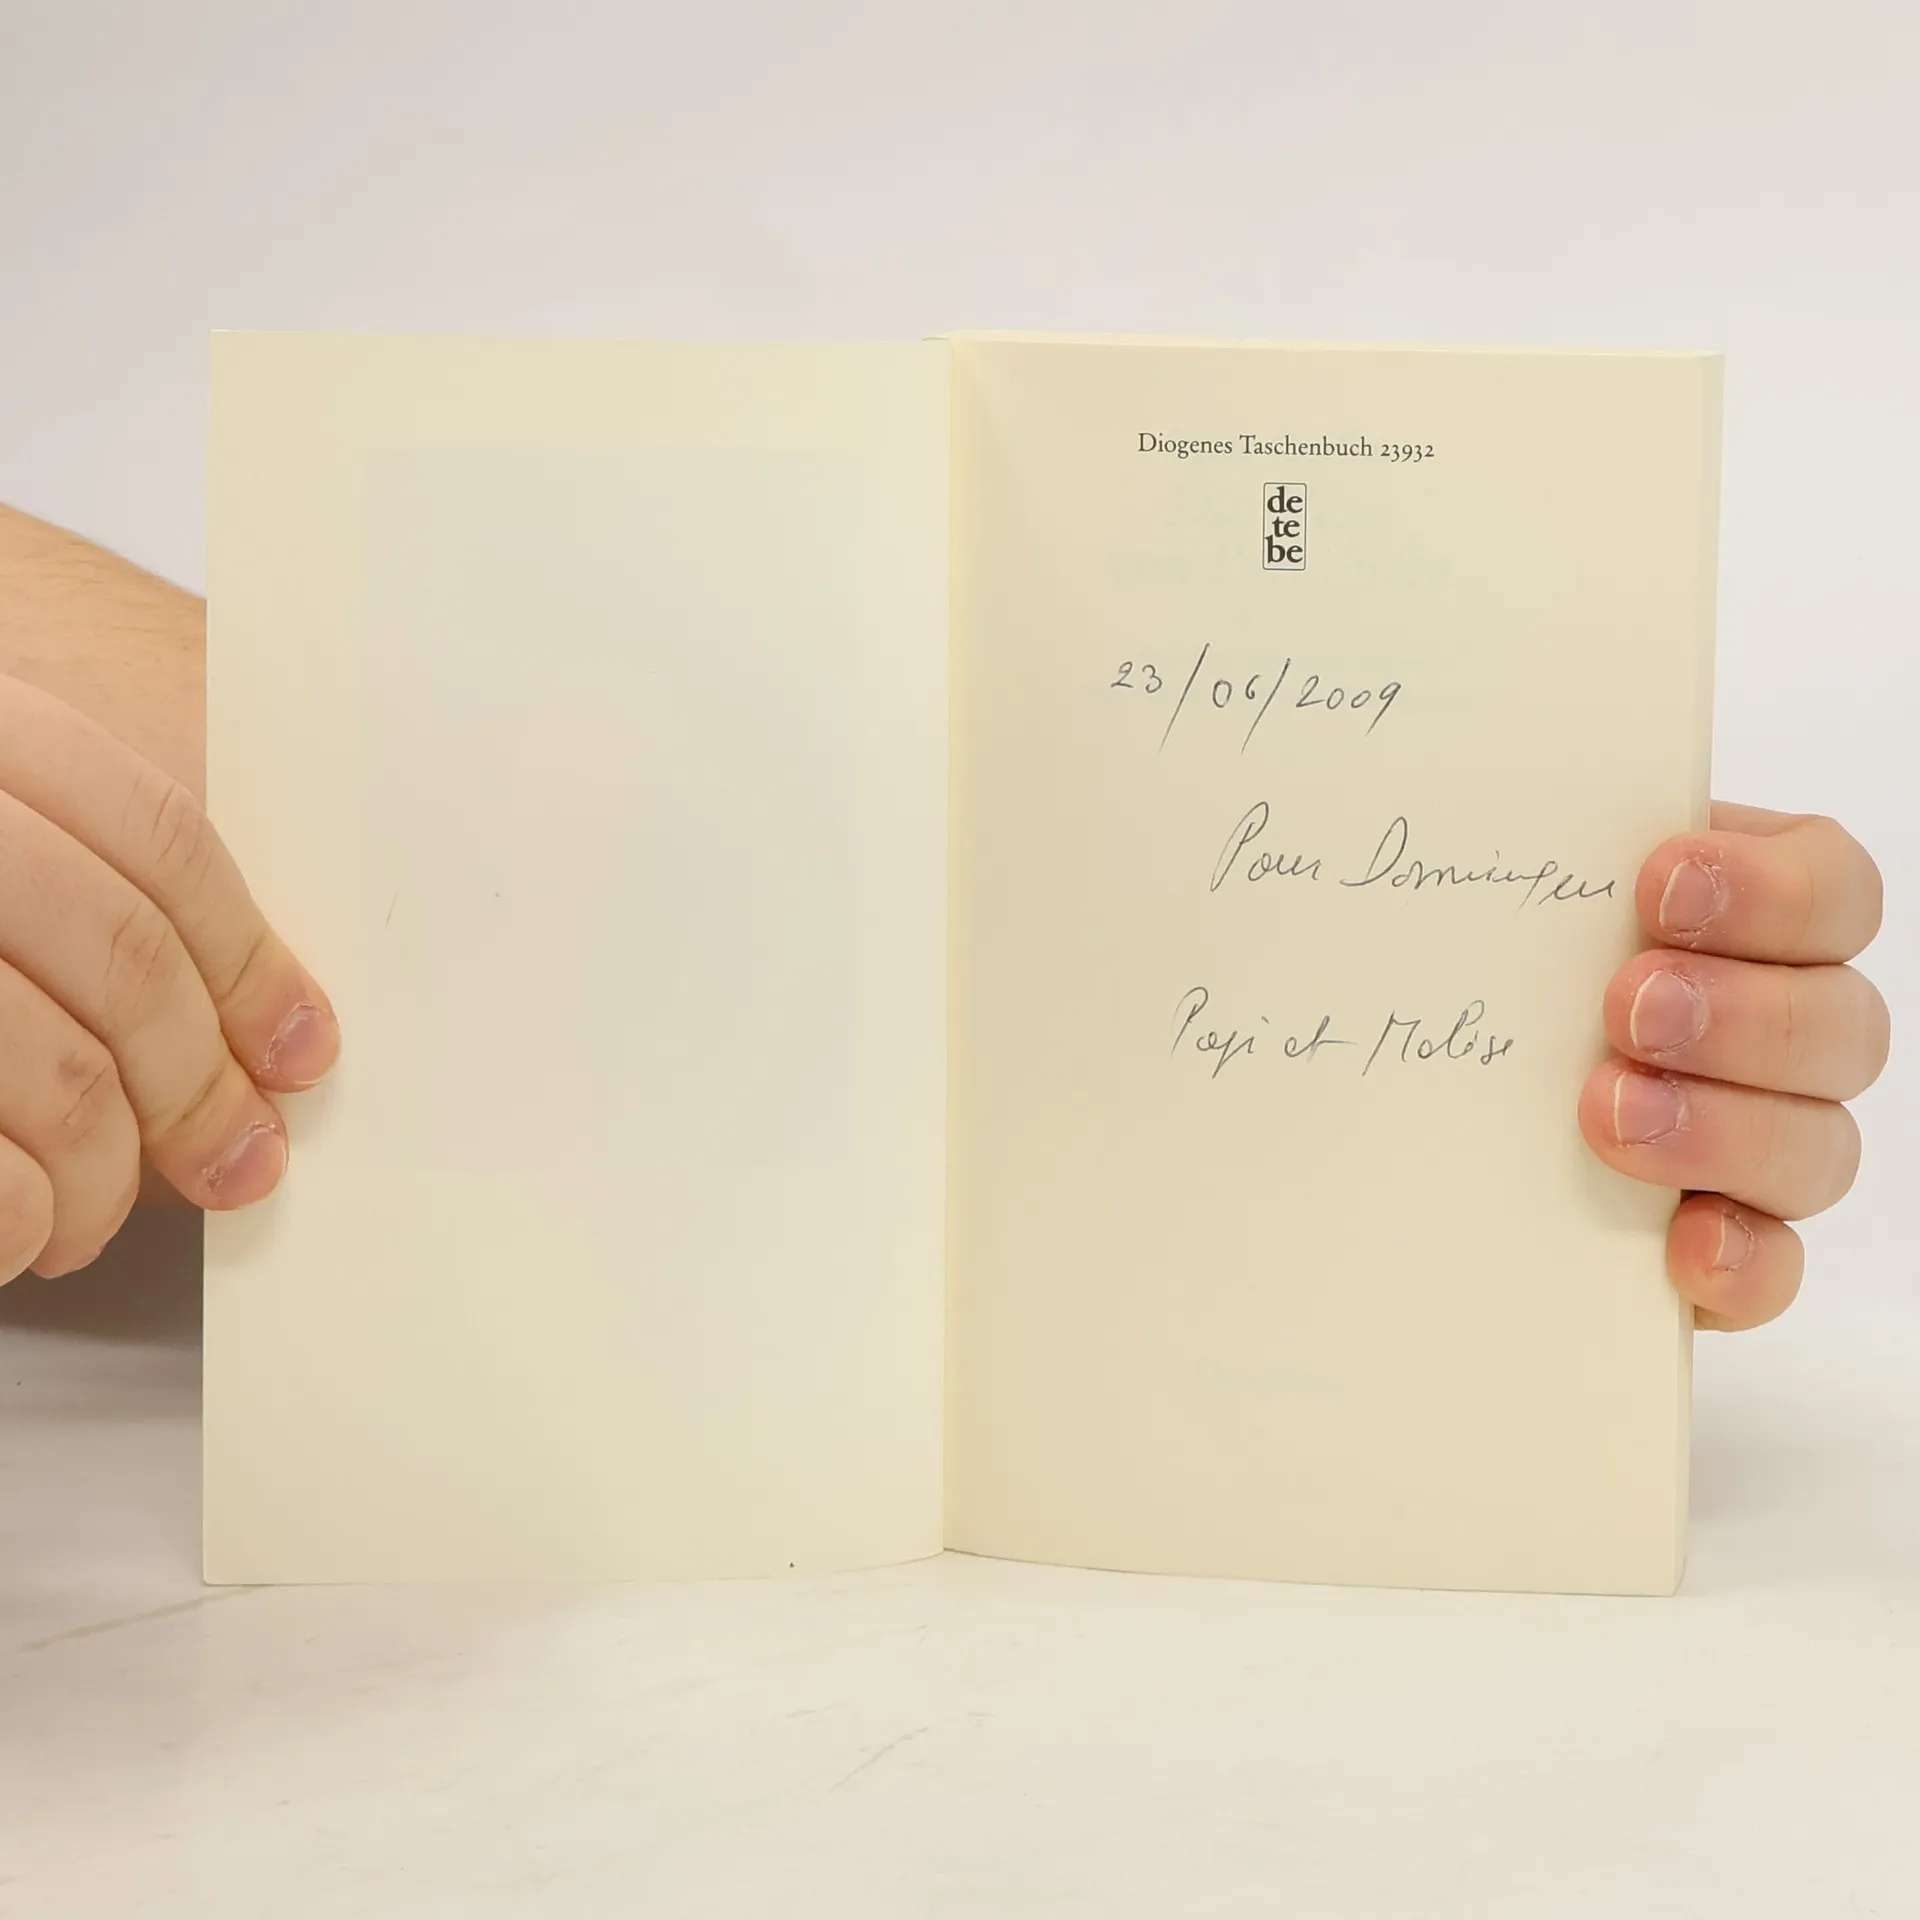 Diogenes Taschenbuch 23932
de
te
be
23/06/2009
Pour
Papi et